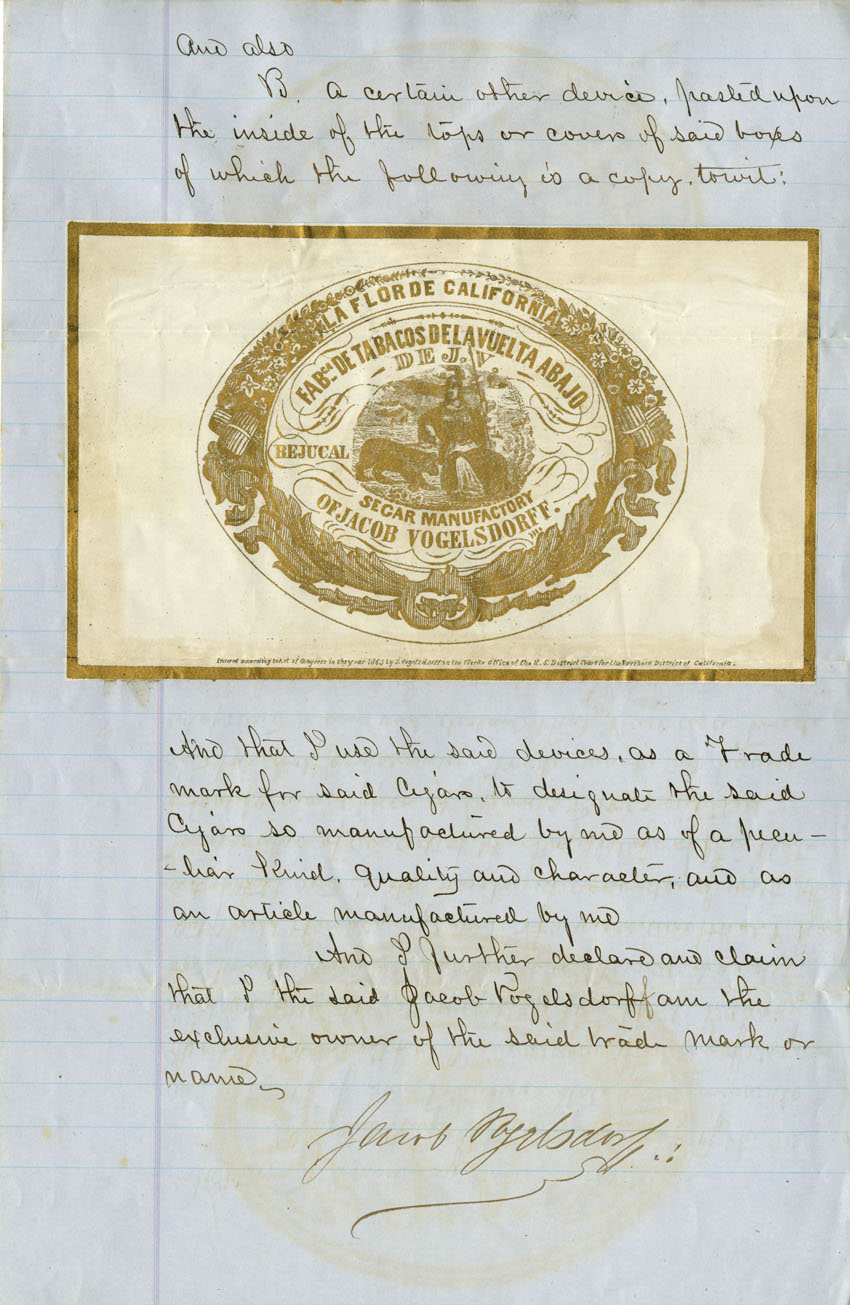 And also
B. a certain other device, pasted upon
the inside of the tops or covers of said boxes
of which the following is a copy, towit:
LA FLOR DE CALIFORNIA
FABCA DE TABACOS DE LA VUELTA ABAJO
DE J. V.
BEJUCAL
SEGAR MANUFACTORY
OF JACOB VOGELSDORFF.
Entered according to Act of Congress in the year 1865 by J. Vogelsdorff in the Clerks Office of the U. S. District Court for the Northern District of California.
And that I use the said devices, as a Trade
mark for said Cigars, to designate the said
Cigars so manufactured by me as of a pecu-
-liar Kind, quality and character, and as
an article manufactured by me
And I further declare and claim
that I the said Jacob Vogelsdorff am the
exclusive owner of the said trade mark or
name.
Jacob Vogelsdorff